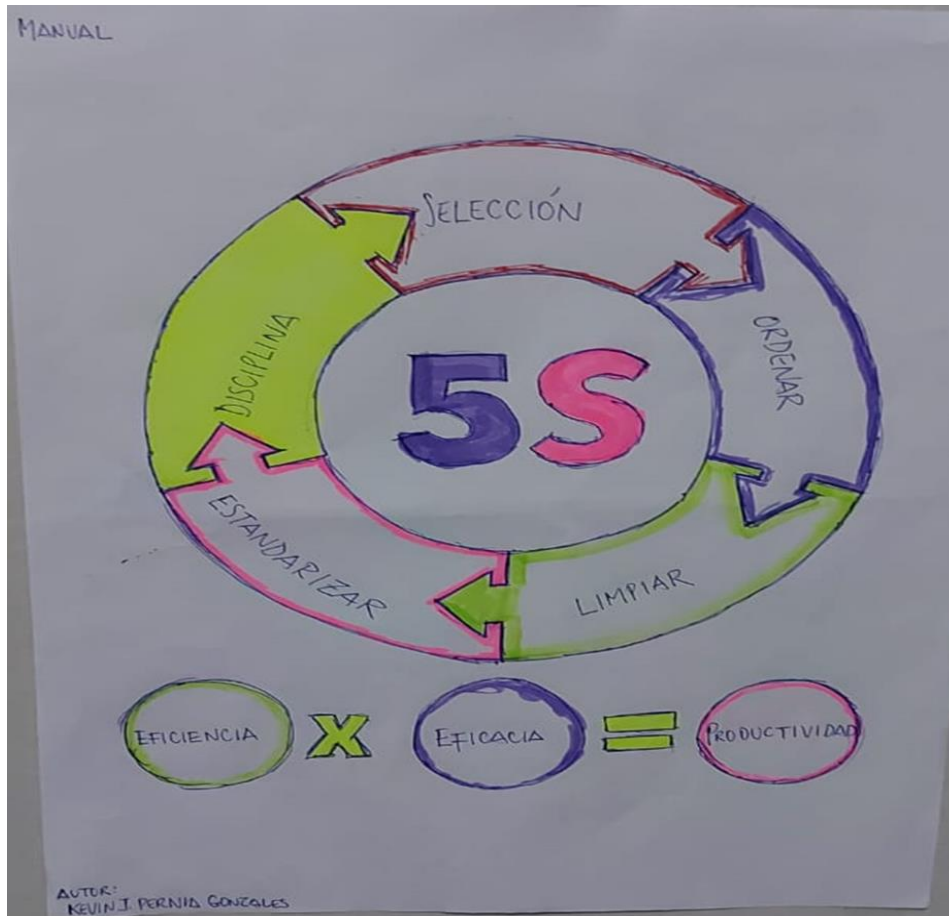 MANUAL
SELECCIÓN
ORDENAR
LIMPIAR
ESTANDARIZAR
DISCIPLINA
5S
EFICIENCIA X EFICACIA = PRODUCTIVIDAD
AUTOR:
KEVIN J. PERNIA GONZALES